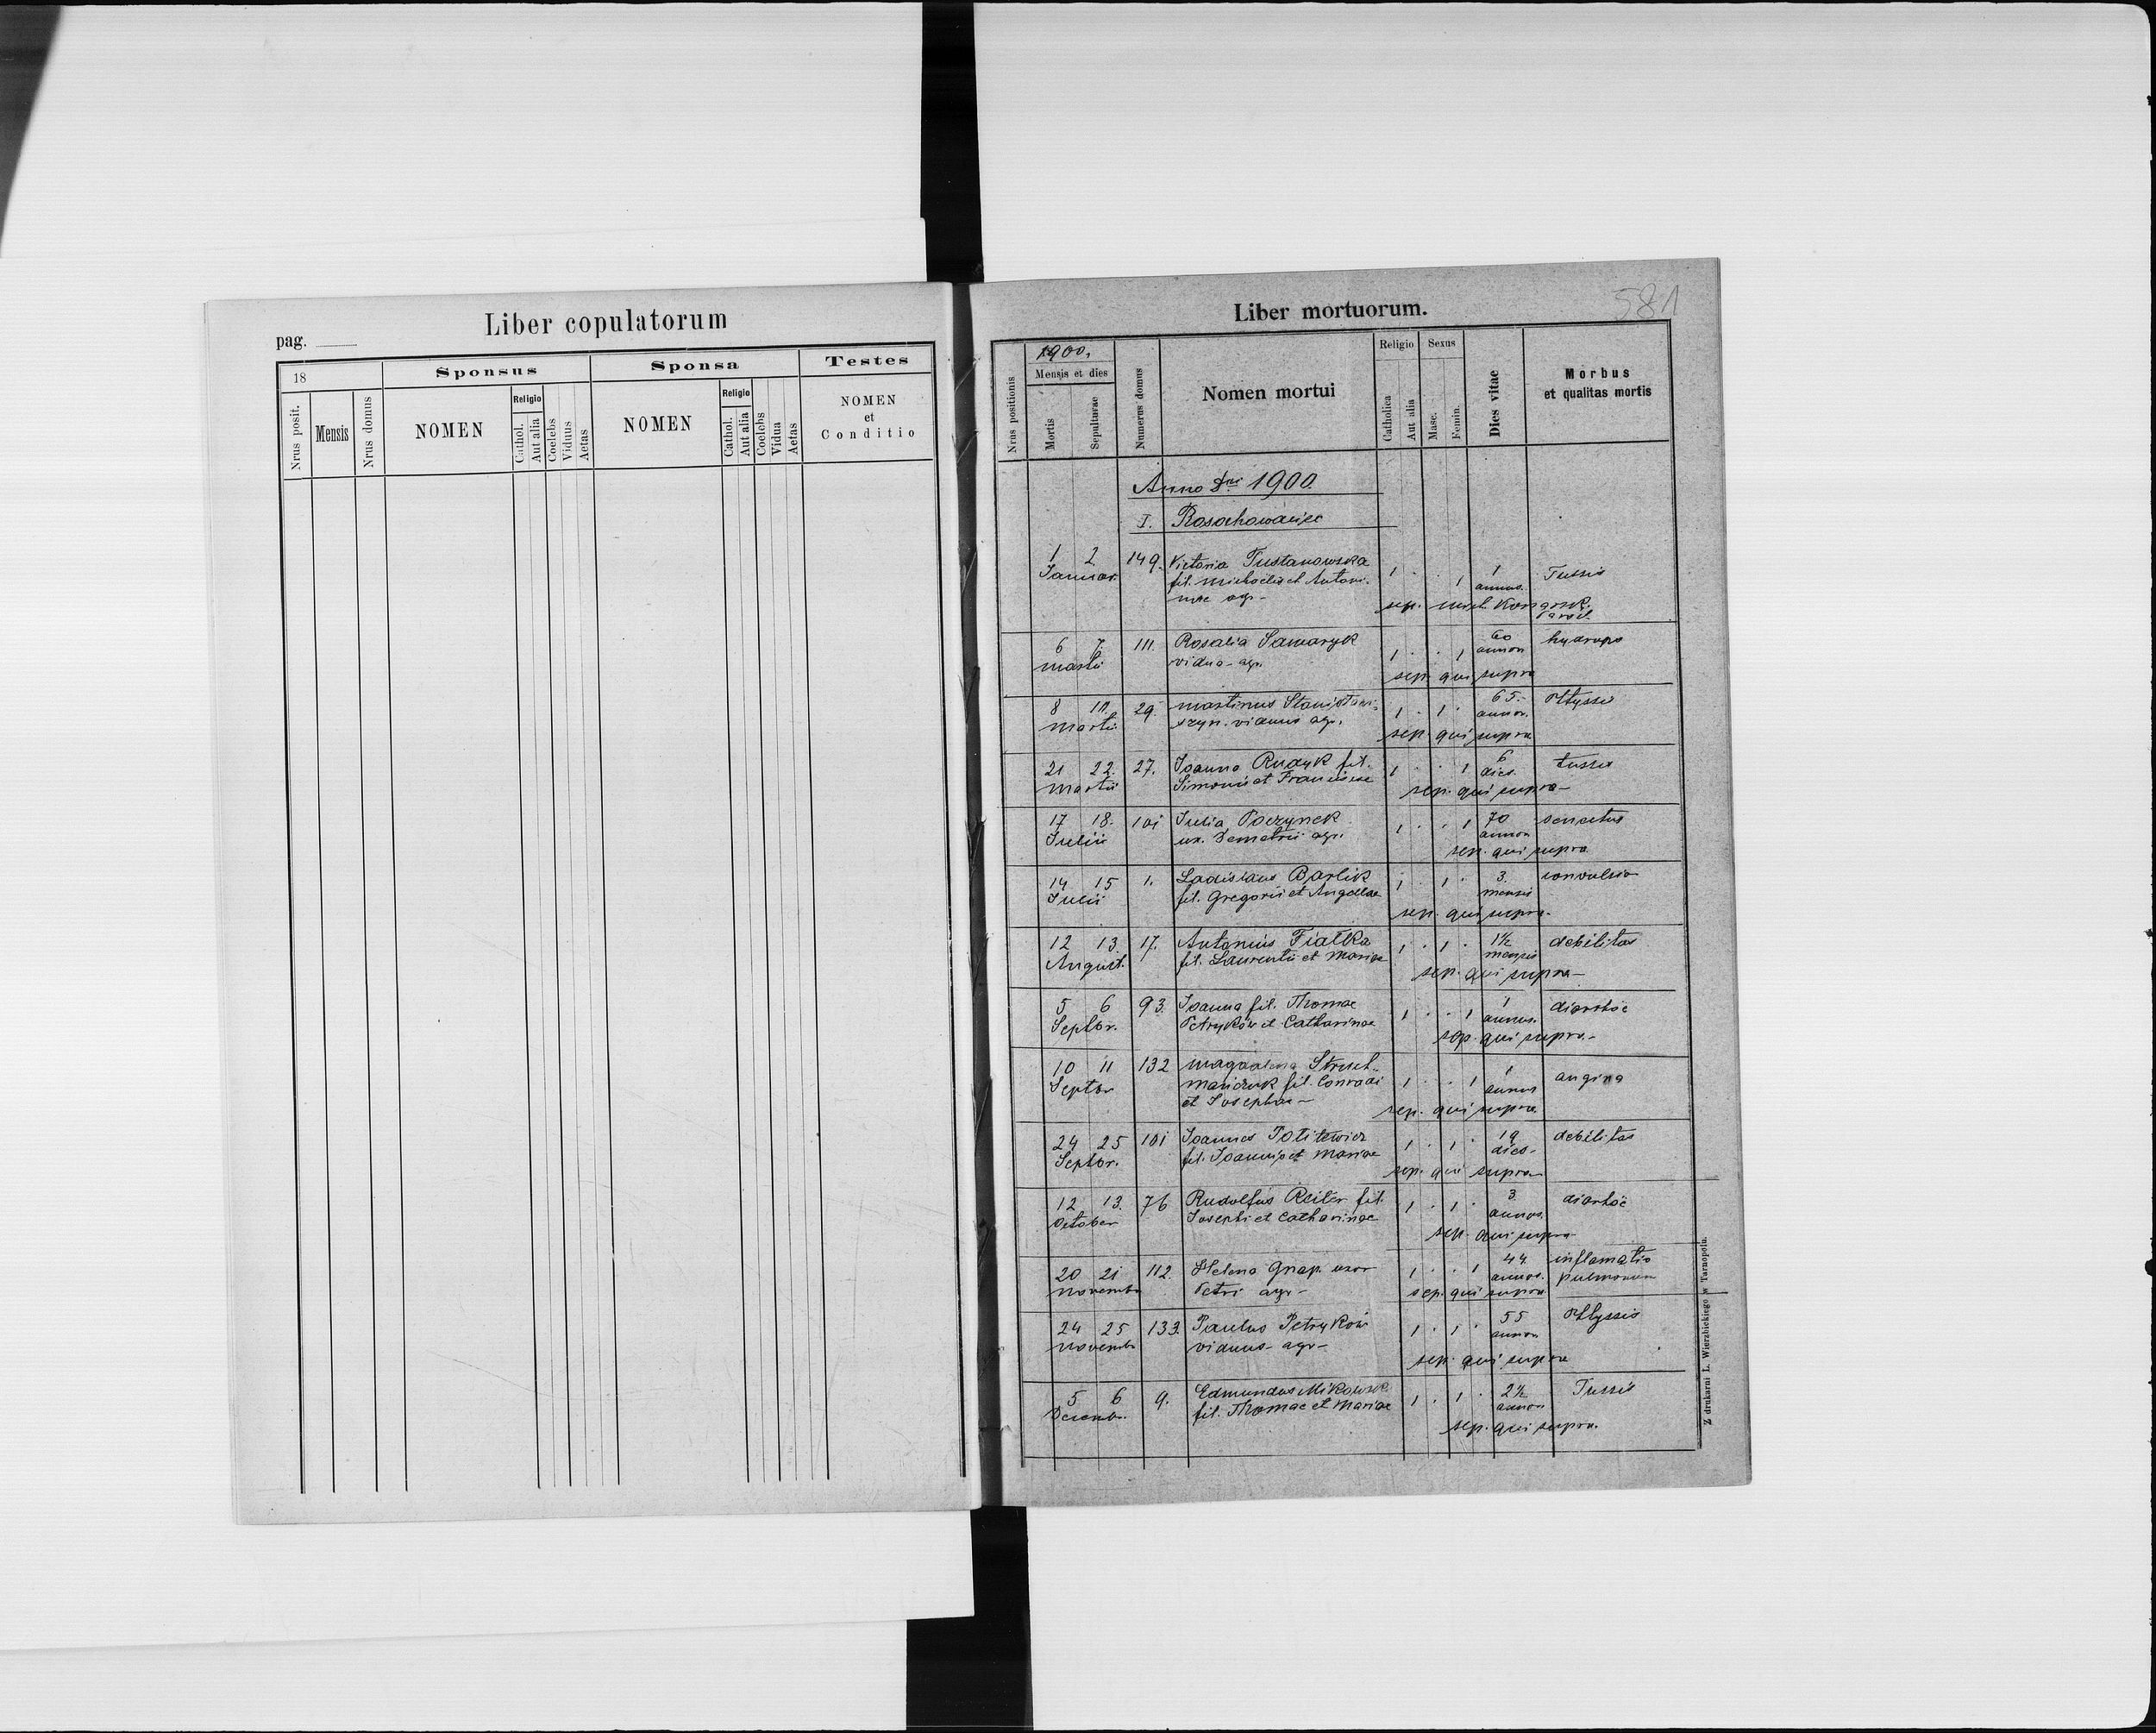 Liber copulatorum
pag.
18
Sponsus
Sponsa
Testes
Nrus posit.
Mensis
Nrus domus
NOMEN
Religio
Cathol.
Aut alia
Coelebs
Viduus
Aetas
NOMEN
Religio
Cathol.
Aut alia
Coelebs
Vidua
Aetas
NOMEN
et
Conditio
Liber mortuorum.
581
Nrus positionis
1900.
Mensis et dies
Mortis
Sepulturae
Numerus domus
Nomen mortui
Religio
Catholica
Aut alia
Sexus
Masc.
Femin.
Dies vitae
Morbus
et qualitas mortis
Anno Dni 1900.
I. Rosochowaciec
1 2 149. Victoria Tustanowska 1 . . 1 1 Tussis
Januar. fil. Michaelis et Antoni- annus.
nae agr-
sep.
6 7. 111. Rosalia Samaryk 1 . . 1 60 hydrops
Martii vidua - agr. annor.
sep. qui supra
8 10. 29. Martinus Stanisławi- 1 . 1 . 65. Phtyssis
Martii szyn. viduus agr. annor.
sep. qui supra
21 22. 27. Joanna Rudyk fil. 1 . . 1 6 tussis
Martii Simonis et Franciscae dies.
sep. qui supra-
17 18. 101 Julia Poczynek 1 . . 1 70 senectus
Julii ux. Demetrii agr. annor.
sep. qui supra
14 15 1. Ladislaus Barlik 1 . 1 . 3. convulsio
Julii fil. Gregorii et Angellae mensis
sep. qui supra.
12 13. 17. Antonius Fiałka 1 . 1 . 1½ debilitas
August. fil. Laurentii et Mariae mensis
sep. qui supra-
5 6 93. Joanna fil. Thomae 1 . . 1 1 diarhöe
Septbr. Petryków et Catharinae annus.
sep. qui supra.-
10 11 132 Magdalena 1 . . 1 1 angina
Septbr fil. Conradi annus
et Josephae-
sep. qui supra
24 25 101 Joannes Politewicz 1 . 1 . 19 debilitas
Septbr. fil. Joannis et Mariae dies-
sep. qui supra-
12 13. 76 Rudolfus Reiter fil. 1 . 1 . 3 diarhöe
October Josephi et Catharinae annos.
sep. qui supra-
20 21 112. Helena Gnap. uxor 1 . . 1 44. inflamatio
Novembr Petri agr- annos. pulmonum
sep. qui supra
24 25 133. Paulus Petryków 1 . 1 . 55 Phtyssis
Novembr viduus- agr- annor
sep. qui supra
5 6 9. Edmundus Mikowsk. 1 . 1 . 2½ Tussis
Decemb. fil. Thomae et Mariae annor
sep. qui supra.
Z drukarni L. Wierzbickiego w Tarnopolu.